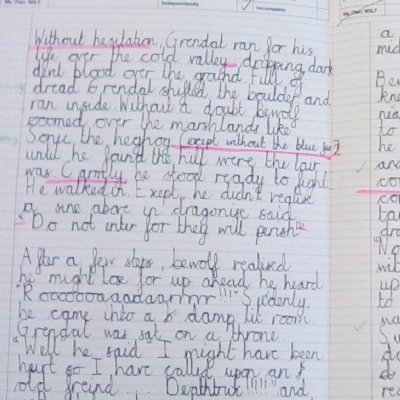 Without hesitation, Grendal ran for his
life over the cold valley dropping dark
blood over the ground. Full of
dread Grendal shifted the boulder and
ran inside. Without a doubt bewolf
zoomed over the marshlands like
Sonic the heghog (except without the blue
until he found the hill were the lair
was he stood ready to fight.
He walked in. Exept, he didn't
a sine above in dragonise said
"Do not enter for they will perish"
After a few steps, bewolf realised
he might lose for up ahead he heard
"Roooooooaaadaarrrrr!!!" Sudenly,
he came into a damp lit room.
Grendal was sat on a throne.
"Well he said I might have been
hurt so I have called upon an
old freind Deathtrix!!!!!" and
a
mid
Be
kne
nea
to
he
and
co
co
ta
dro
"No
wit
up
to
na
Su
do
as
res